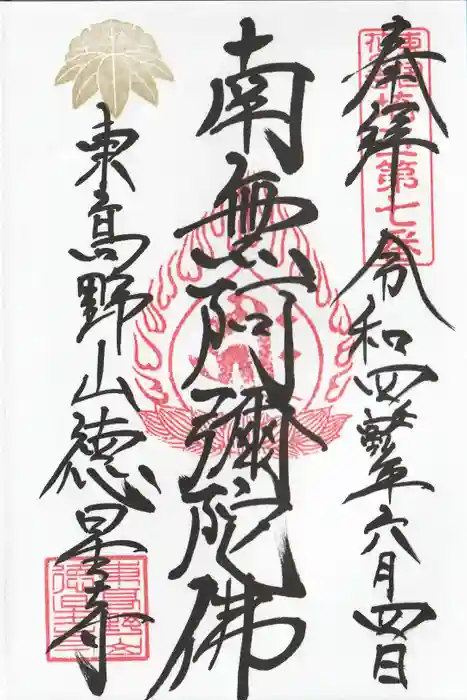 奉拝 令和四年六月四日
南無阿彌陀佛
東高野山德星寺
第七番